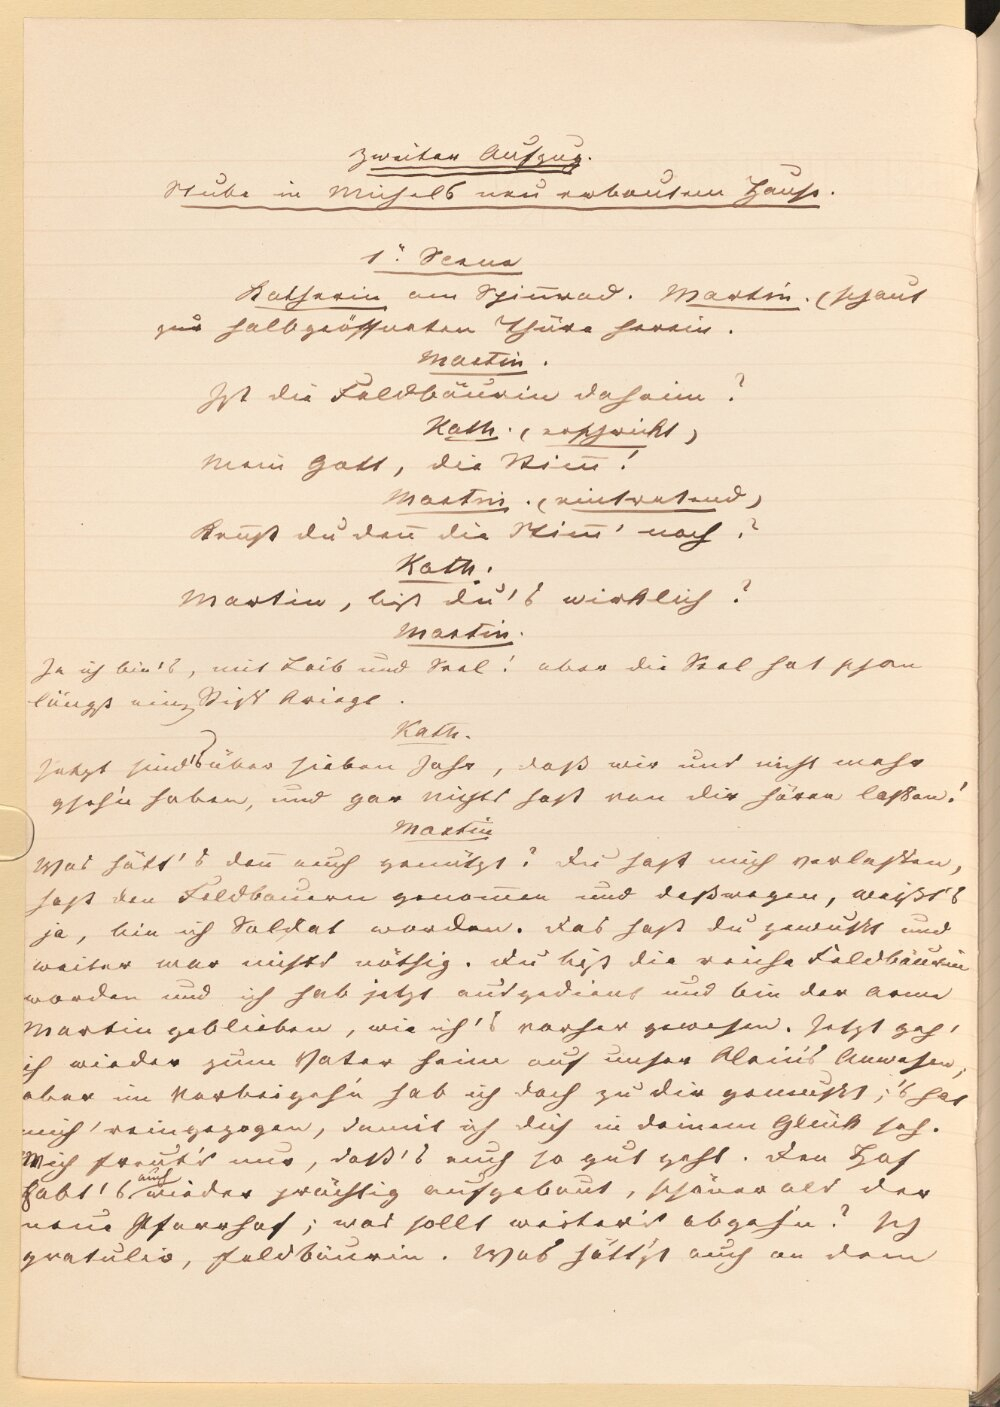 Zweiter Aufzug.
Stube in Michels neu erbautem Hause.
1. Scene
Katharin am Spinnrad. Martin. (schaut
zur halbgeöffneten Thüre herein.
Martin.
Ist die Feldbäurin daheim?
Kath. (erschrickt)
Mein Gott, die Stim̅!
Martin. (eintretend)
Keñst du deñ die Stim̅' noch?
Kath.
Martin, bist du's wirklich?
Martin.
Ja ich bin's, mit Leib und Seel! aber die Seel hat schon
längst ein Stich kriegt.
Kath.
Jetzt sind's über sieben Jahr, daß wir uns nicht mehr
gseh'n haben, und gar nichts hast von dir hören lassen!
Martin
Was hätt's deñ auch genützt? Du hast mich verlassen,
hast den Feldbauern genom̅en und deßwegen, weißt's
ja, bin ich Soldat worden. Das hast du gewußt und
weiter war nichts nöthig. Du bist die reiche Feldbäurin
worden und ich hab jetzt ausgedient und bin der arme
Martin geblieben, wie ich's vorher gewesen. Jetzt geh'
ich wieder zum Vater heim auf unser klein's Anwesen,
aber im Vorbeigeh'n hab ich doch zu dir gemußt; 's hat
mich 'reingezogen, damit ich dich in deinem Glück seh.
Mich freut's nur, daß's euch so gut geht. Den Hof
habt's auch wieder prächtig aufgebaut, schöner als der
neue Pfarrhof; was sollt weiter's abgeh'n? Ich
gratulir, Feldbäurin. Was hätt'st auch an dem